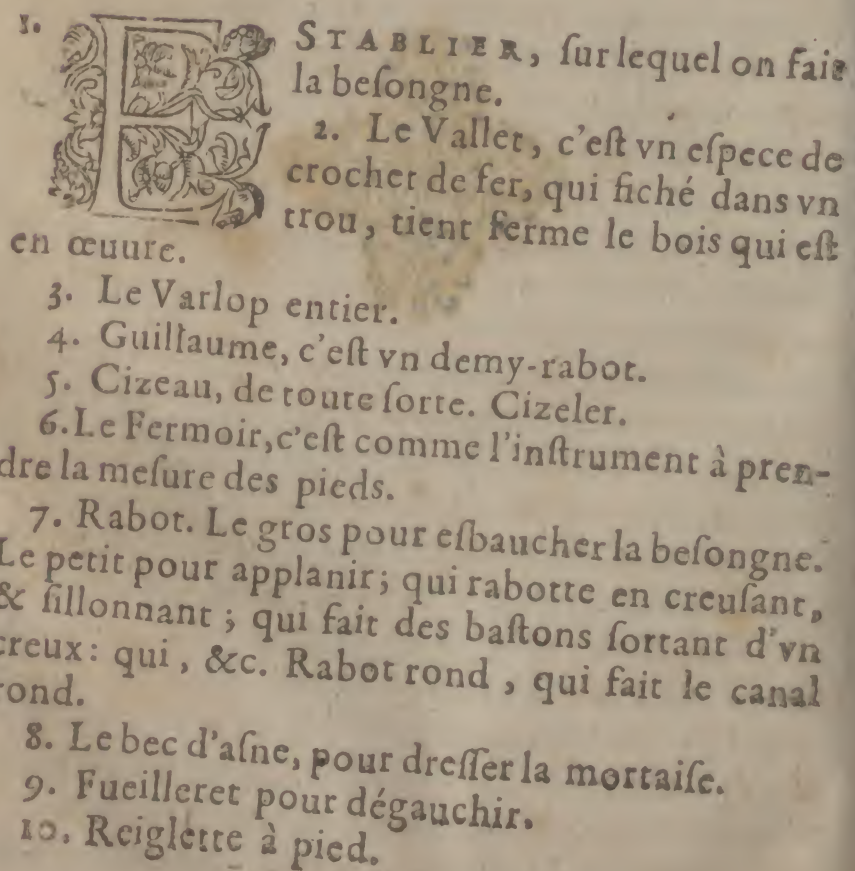 1. ESTABLIER, ſur lequel on fait
la beſongne.
2. Le Vallet, c'eſt vn eſpece de
crochet de fer, qui fiché dans vn
trou, tient ferme le bois qui eſt
en œuure.
3. Le Varlop entier.
4. Guillaume, c'eſt vn demy-rabot.
5. Cizeau, de toute ſorte. Cizeler.
6. Le Fermoir, c'eſt comme l'inſtrument à pren-
dre la meſure des pieds.
7. Rabot. Le gros pour eſbaucher la beſongne.
Le petit pour applanir; qui rabotte en creuſant,
& ſillonnant; qui fait des baſtons ſortant d'vn
creux: qui, &c. Rabot rond, qui fait le canal
rond.
8. Le bec d'aſne, pour dreſſer la mortaiſe.
9. Fueilleret pour dégauchir.
10. Reiglette à pied.